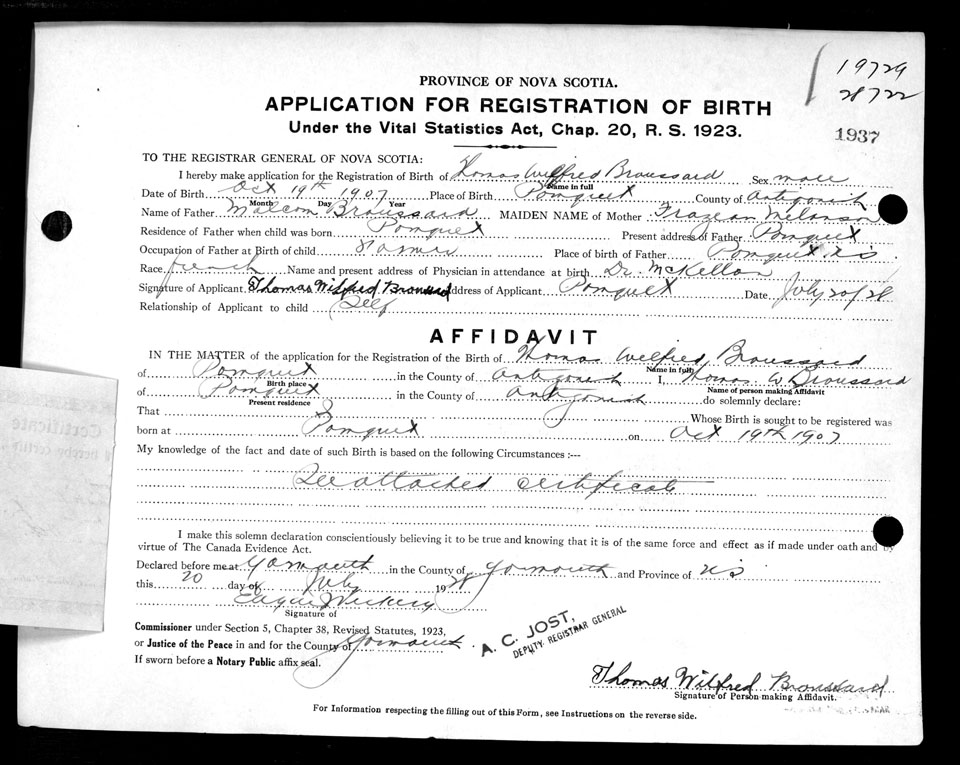 19729
28722
1937
PROVINCE OF NOVA SCOTIA.
APPLICATION FOR REGISTRATION OF BIRTH
Under the Vital Statistics Act, Chap. 20, R. S. 1923.
TO THE REGISTRAR GENERAL OF NOVA SCOTIA:
I hereby make application for the Registration of Birth of Thomas Wilfred Broussard Sex male
Name in full
Date of Birth Oct 19th 1907 Place of Birth Pomquet County of Antigonish
Month Day Year
Name of Father Malcom Broussard MAIDEN NAME of Mother Melanson
Residence of Father when child was born Pomquet Present address of Father Pomquet
Occupation of Father at Birth of child Farmer Place of birth of Father Pomquet N.S.
Race french Name and present address of Physician in attendance at birth Dr. McKellar
Signature of Applicant Thomas Wilfred Broussard Address of Applicant Pomquet Date July 20/28
Relationship of Applicant to child Self
AFFIDAVIT
IN THE MATTER of the application for the Registration of the Birth of Thomas Wilfred Broussard
Name in full
of Pomquet in the County of Antigonish I, Thomas W Broussard
Birth place Name of person making Affidavit
of Pomquet in the County of Antigonish do solemnly declare:
Present residence
That I Whose Birth is sought to be registered was
born at Pomquet on Oct 19th 1907
My knowledge of the fact and date of such Birth is based on the following Circumstances :--
See attached certificate
I make this solemn declaration conscientiously believing it to be true and knowing that it is of the same force and effect as if made under oath and by
virtue of The Canada Evidence Act.
Declared before me at Yarmouth in the County of Yarmouth and Province of N S
this 20 day of July 1928
Signature of
Commissioner under Section 5, Chapter 38, Revised Statutes, 1923,
or Justice of the Peace in and for the County of Yarmouth
If sworn before a Notary Public affix seal.
A. C. JOST,
DEPUTY REGISTRAR GENERAL
Thomas Wilfred Broussard
Signature of Person making Affidavit.
For Information respecting the filling out of this Form, see Instructions on the reverse side.